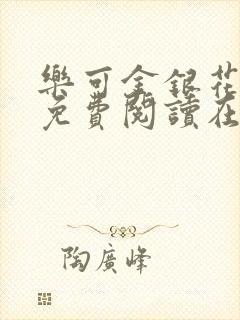 樂可金銀花
免費閱讀在
陶廣峰